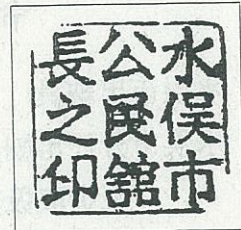 水俣市
公民舘
長之印